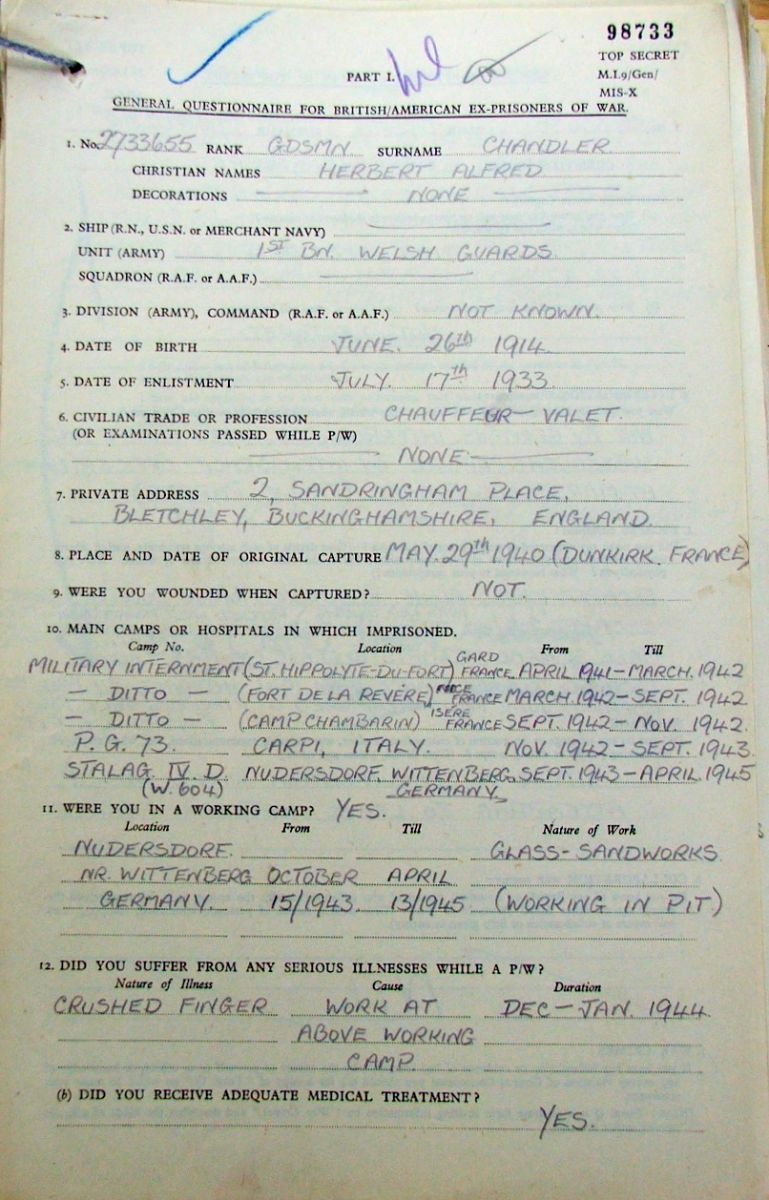 98733
TOP SECRET
M.I.9/Gen/
MIS-X
PART I.
GENERAL QUESTIONNAIRE FOR BRITISH/AMERICAN EX-PRISONERS OF WAR.
1. No. 2733655 RANK GDSMN SURNAME CHANDLER
CHRISTIAN NAMES HERBERT ALFRED
DECORATIONS NONE
2. SHIP (R.N., U.S.N. or MERCHANT NAVY)
UNIT (ARMY) 1ST BN. WELSH GUARDS
SQUADRON (R.A.F. or A.A.F.)
3. DIVISION (ARMY), COMMAND (R.A.F. or A.A.F.) NOT KNOWN.
4. DATE OF BIRTH JUNE. 26th 1914
5. DATE OF ENLISTMENT JULY. 17th 1933
6. CIVILIAN TRADE OR PROFESSION CHAUFFEUR-VALET.
(OR EXAMINATIONS PASSED WHILE P/W)
NONE
7. PRIVATE ADDRESS 2, SANDRINGHAM PLACE,
BLETCHLEY, BUCKINGHAMSHIRE, ENGLAND.
8. PLACE AND DATE OF ORIGINAL CAPTURE MAY. 29th 1940 (DUNKIRK. FRANCE)
9. WERE YOU WOUNDED WHEN CAPTURED? NOT.
10. MAIN CAMPS OR HOSPITALS IN WHICH IMPRISONED.
Camp No. Location From Till
MILITARY INTERNMENT (ST. HIPPOLYTE-DU-FORT) GARD FRANCE. APRIL 1941-MARCH. 1942
— DITTO — (FORT DE LA REVERE) FRANCE MARCH. 1942-SEPT. 1942
— DITTO — (CAMP CHAMBARIN) ISERE FRANCE SEPT. 1942-NOV. 1942.
P.G. 73. CARPI, ITALY. NOV. 1942-SEPT. 1943
STALAG IV. D. NUDERSDORF. WITTENBERG. SEPT. 1943-APRIL. 1945
(W. 604) GERMANY.
11. WERE YOU IN A WORKING CAMP? YES.
Location From Till Nature of Work
NUDERSDORF. GLASS-SANDWORKS
NR. WITTENBERG OCTOBER APRIL
GERMANY. 15/1943. 13/1945 (WORKING IN PIT)
12. DID YOU SUFFER FROM ANY SERIOUS ILLNESSES WHILE A P/W?
Nature of Illness Cause Duration
CRUSHED FINGER WORK AT DEC-JAN. 1944.
ABOVE WORKING
CAMP.
(b) DID YOU RECEIVE ADEQUATE MEDICAL TREATMENT?
YES.